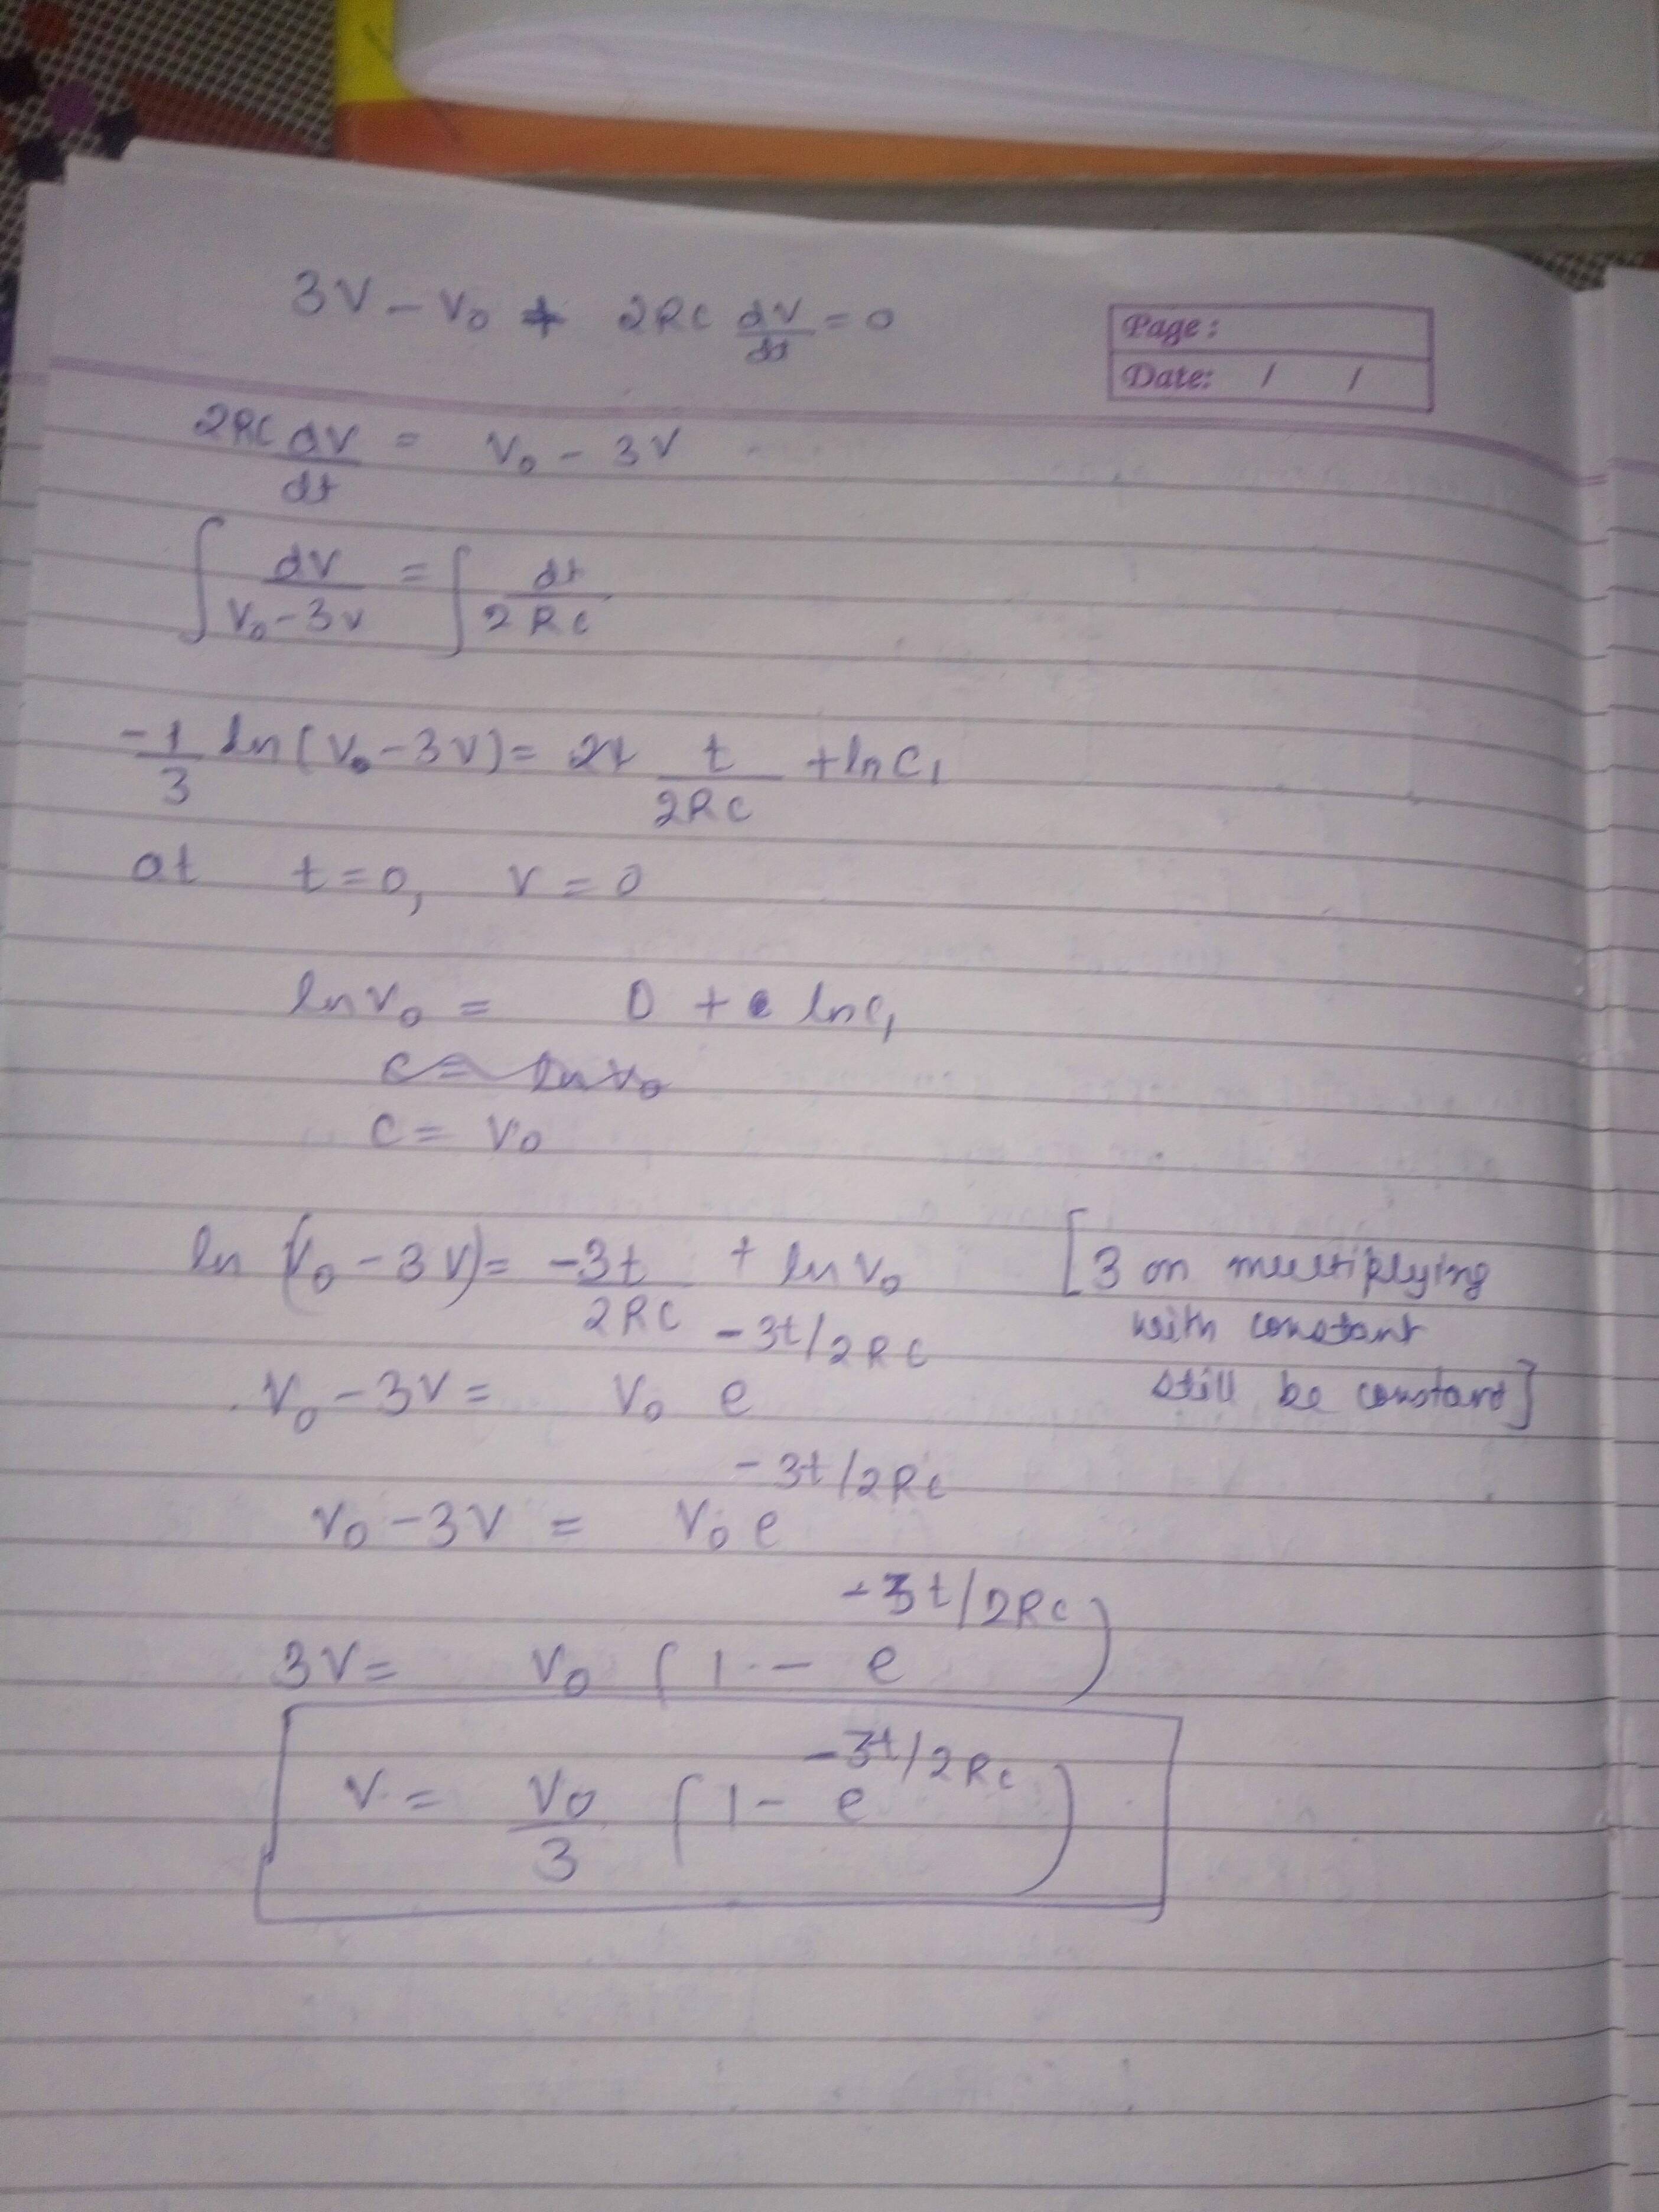 3V - V₀ + 2RC dV/dt = 0
Page :
Date: / /
2RC dV/dt = V₀ - 3V
∫ dV/(V₀ - 3v) = ∫ dt/2RC
-1/3 ln(V₀ - 3V) = t/2RC + ln C₁
at t = 0, V = 0
ln V₀ = 0 + ln C₁
c = ln V₀
c = V₀
ln (V₀ - 3V) = -3t/2RC + ln V₀ [3 on multiplying
with constant
still be constant]
V₀ - 3V = V₀ e^(-3t/2RC)
V₀ - 3V = V₀ e^(-3t/2RC)
3V = V₀ (1 - e^(-3t/2RC))
V = V₀/3 (1 - e^(-3t/2RC))